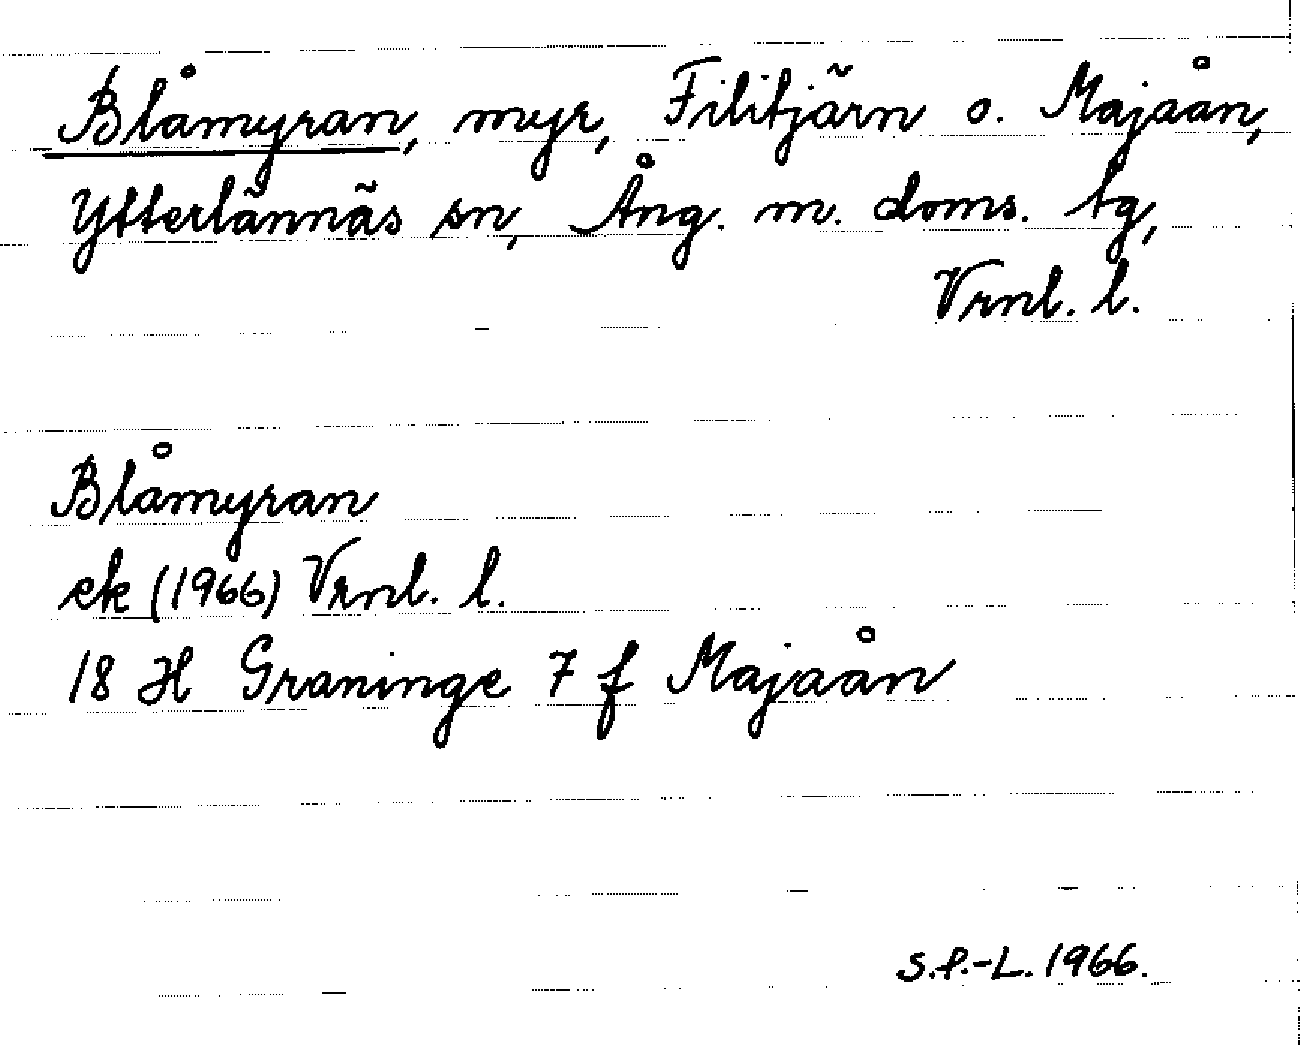 Blåmyran, myr, Filitjärn o. Majaån,
Ytterlännäs sn, Ång. m. doms. tg,
Vrnl. l.
Blåmyran
ek (1966) Vrnl. l.
18 H Graninge 7 f Majaån
S.P.-L. 1966.